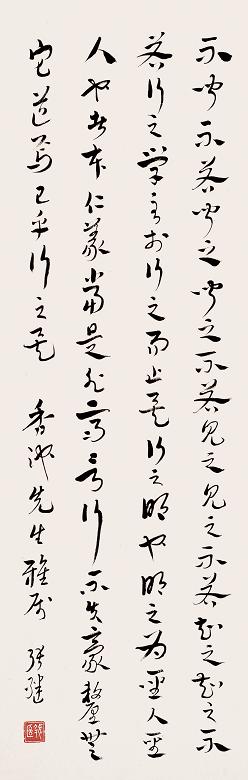 不聞不若聞之聞之不若見之見之不若知之知之不
若行之學至於行之而止矣行之明也明之為聖人聖
人也者本仁義當是非齊言行不失豪釐無
它道焉已乎行之矣 香池先生雅屬 張繼